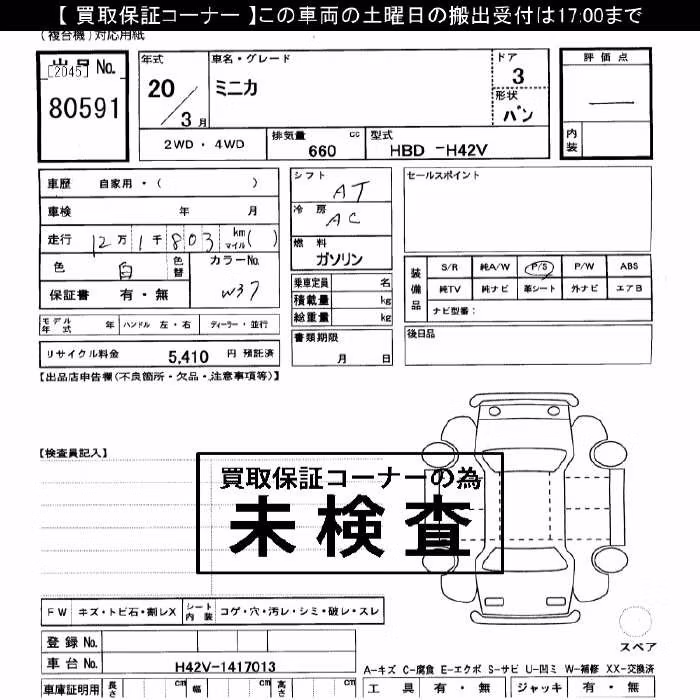 【 買取保証コーナー 】この車両の土曜日の搬出受付は17:00まで
(複合機)対応用紙
出品No.
[2045]
80591
年式
20/3月
車名・グレード
ミニカ
ドア
3
形状
バン
評価点
―
内装
2WD ・ 4WD
排気量 660 cc
型式 HBD -H42V
車歴 自家用・( )
車検 年 月
走行 12万1千803 km マイル( )
色 白 色替
カラーNo. W37
保証書 有・無
シフト AT
冷房 AC
燃料 ガソリン
乗車定員 名
積載量 kg
総重量 kg
書類期限 月 日
セールスポイント
装備品
S/R 純A/W P/S P/W ABS
純TV 純ナビ 革シート 外ナビ エアB
ナビ型番:
後日品
モデル年式 年 ハンドル 左・右 ディーラー・並行
リサイクル料金 5,410 円 預託済
【出品店申告欄(不良箇所・欠品・注意事項等)】
【検査員記入】
買取保証コーナーの為
未検査
FW キズ・トビ石・割レX シート内装 コゲ・穴・汚レ・シミ・破レ・スレ
スペア
登録No.
車台No. H42V-1417013
A-キズ C-腐食 E-エクボ S-サビ U-凹ミ W-補修 XX-交換済
車庫証明用 長さ cm 幅 cm 高さ cm
工具 有・無 ジャッキ 有・無